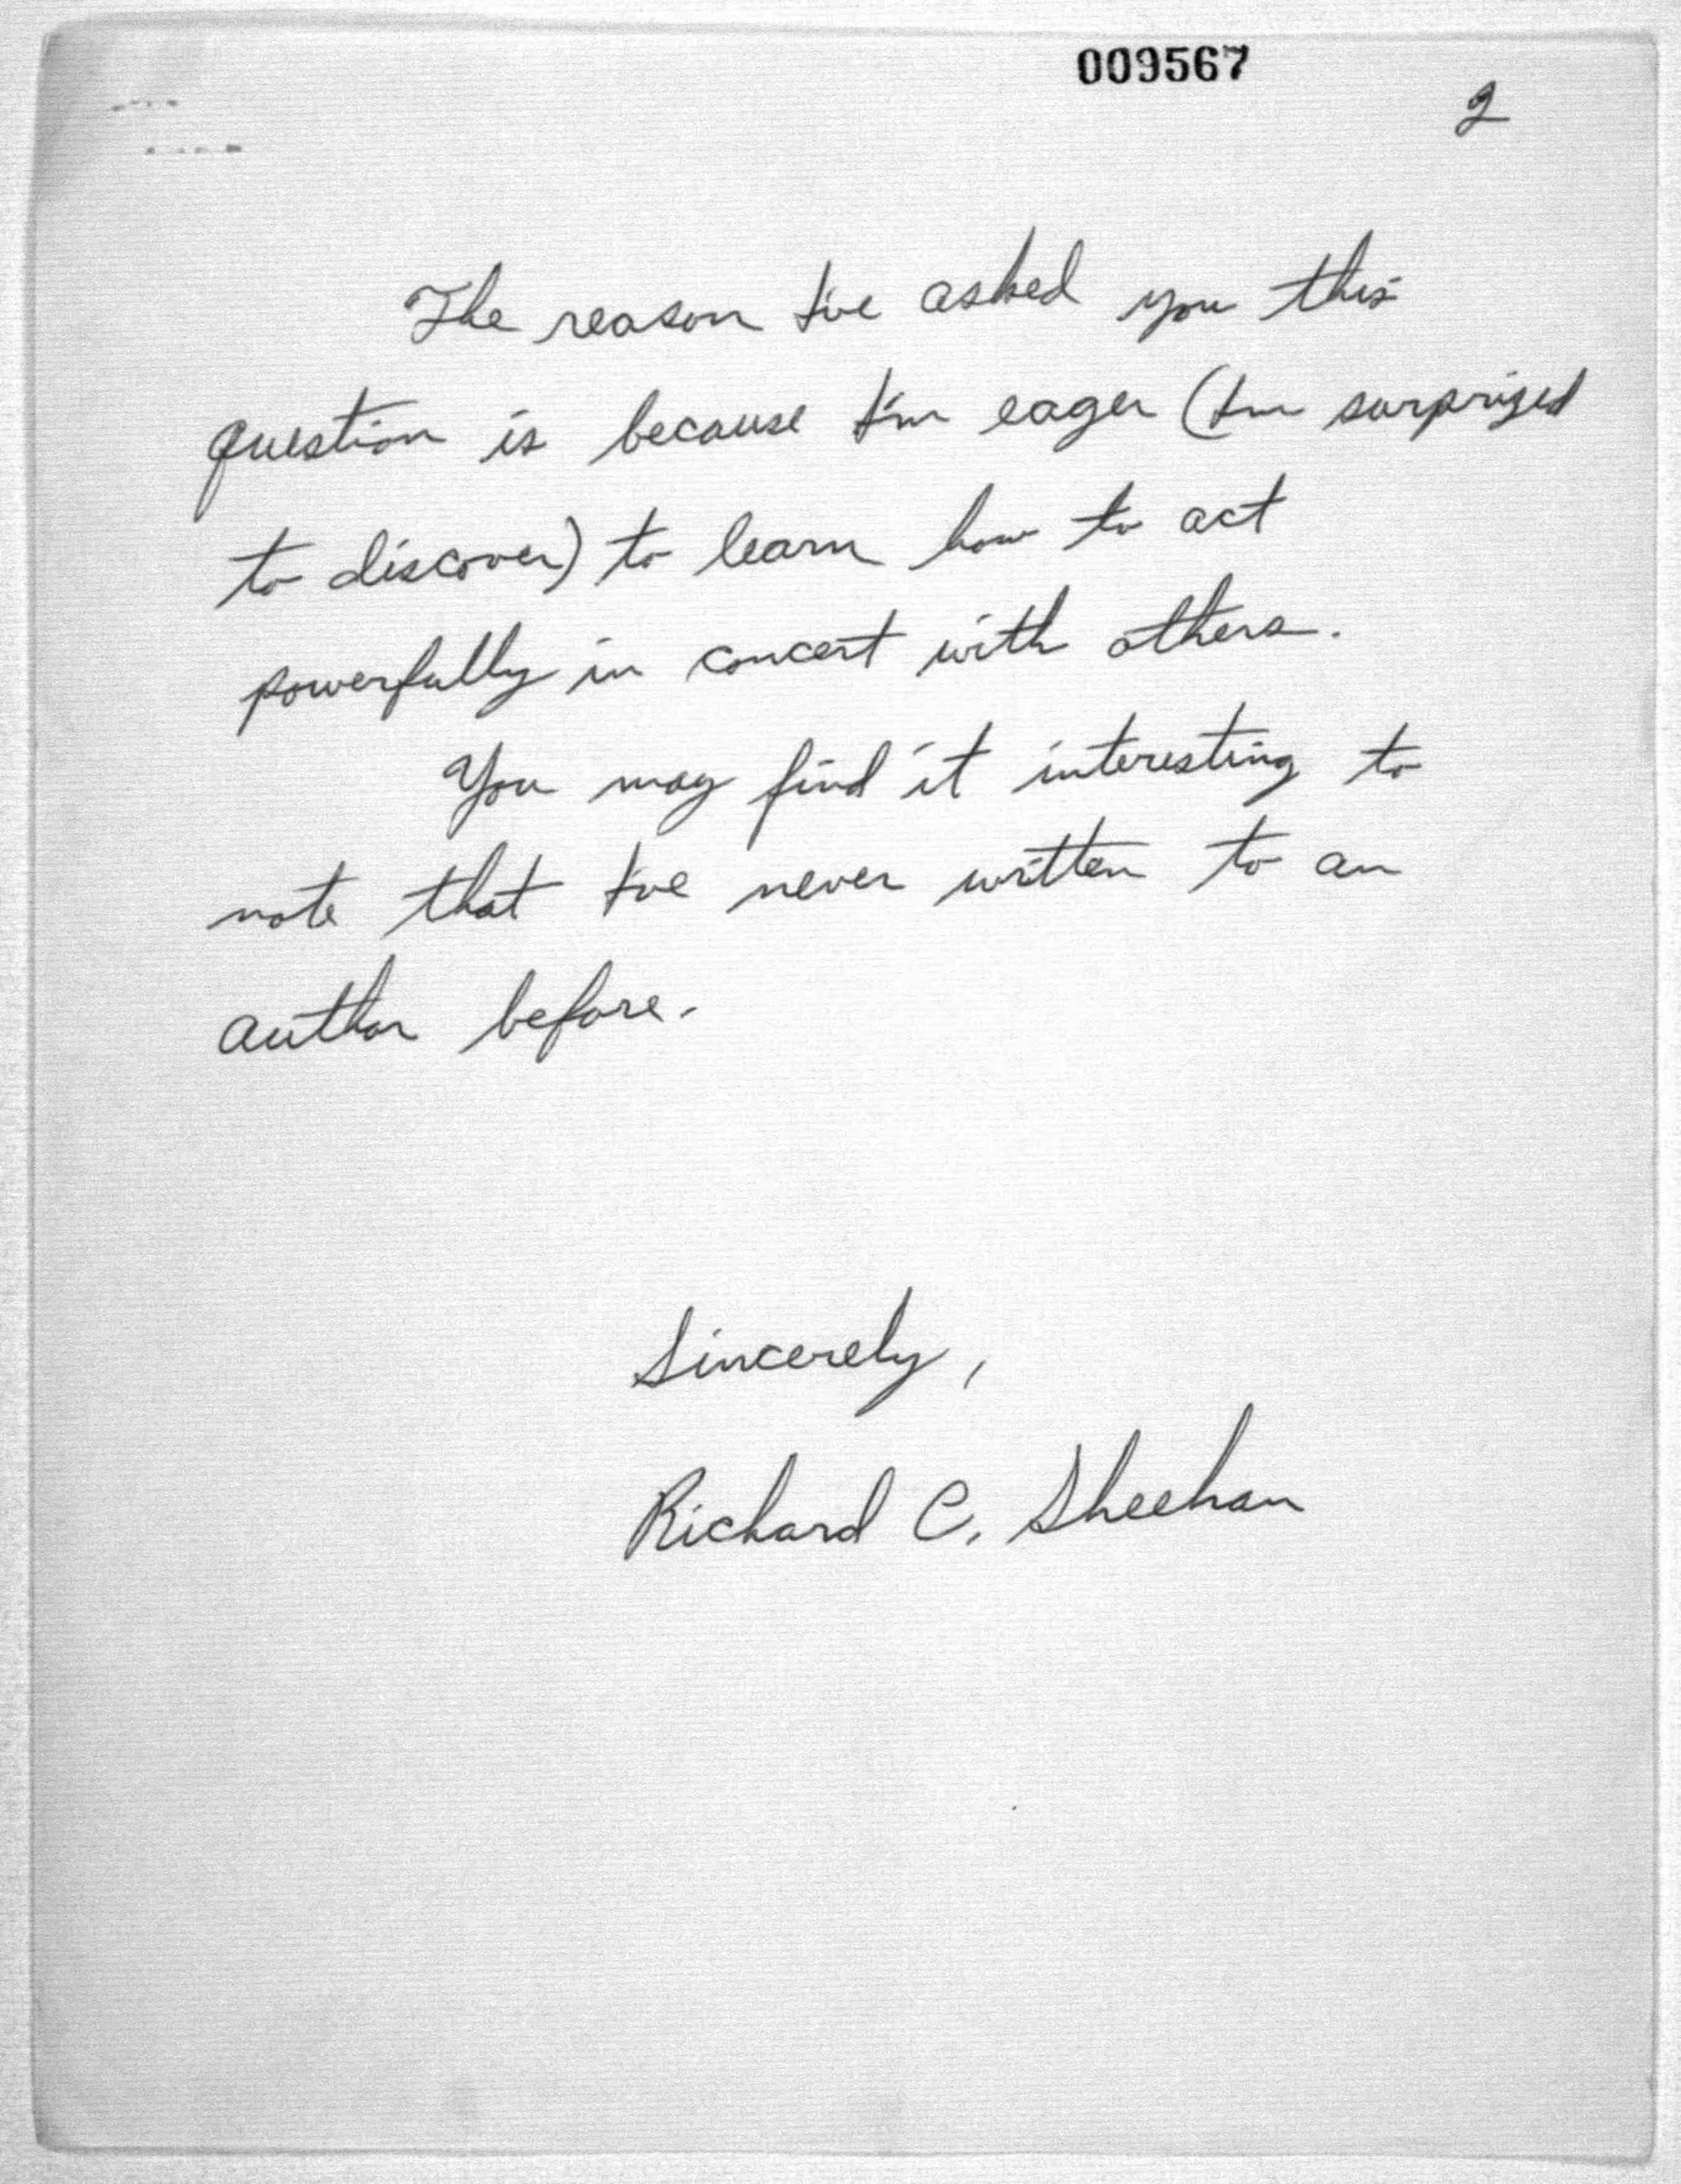 009567
2
The reason I've asked you this
question is because I'm eager (I'm surprized
to discover) to learn how to act
powerfully in concert with others.
You may find it interesting to
note that I've never written to an
author before.
Sincerely,
Richard C. Sheehan